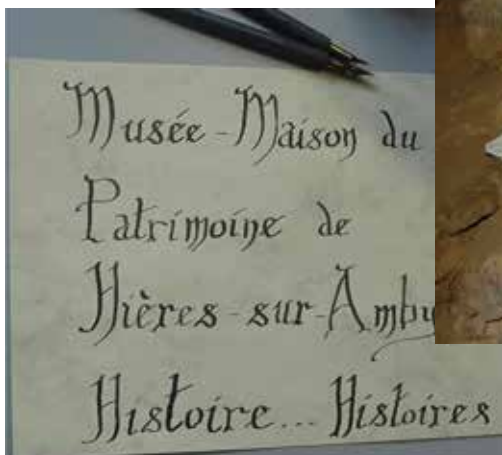 Musée-Maison du
Patrimoine de
Hières-sur-Amby
Histoire... Histoires